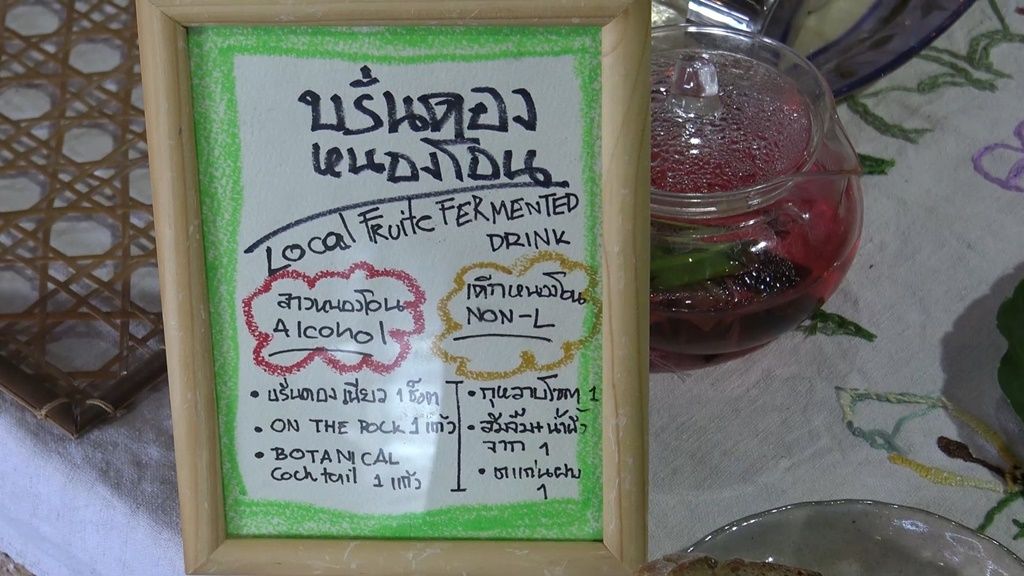 บรั่นดอง
หนองโอน
Local Fruite FERMENTED
DRINK
สาวหนองโอน
Alcohol
เด็กหนองโอน
NON-L
• บรั่นดอง เพียว 1 ช็อต
• ON THE ROCK 1 แก้ว
• BOTANICAL
Cocktail 1 แก้ว
• กุหลาบโซดา 1
• ส้มลิ้ม+น้ำผึ้ง
จาก 1
• ตาแก่นฝบ
1